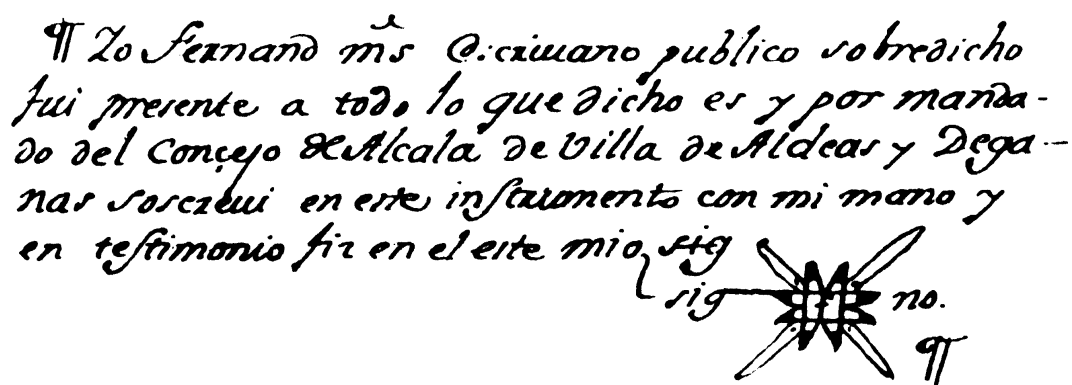 ¶ Yo Fernand mrs escriuano publico sobredicho
fui presente a todo lo que dicho es y por manda-
do del Conçejo de Alcala de Villa de Aldeas y Dega-
nas soscreui en este instrumento con mi mano y
en testimonio fiz en el este mio sig
sig no.
¶